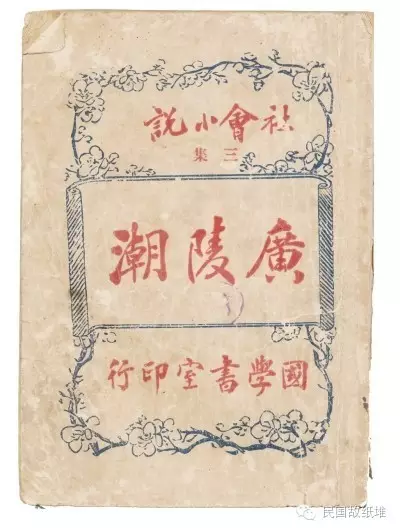 社會小說
三集
廣陵潮
國學書室印行
民国故纸堆